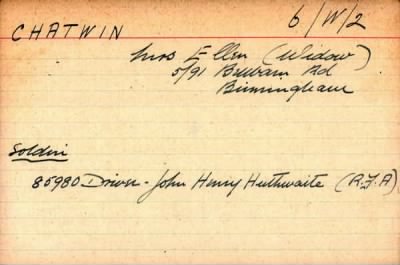 CHATWIN 6/W/2
Mrs Ellen (Widow)
5/91 Rd
Birmingham
Soldier
85980 Driver - John Henry Huthwaite (R.F.A)